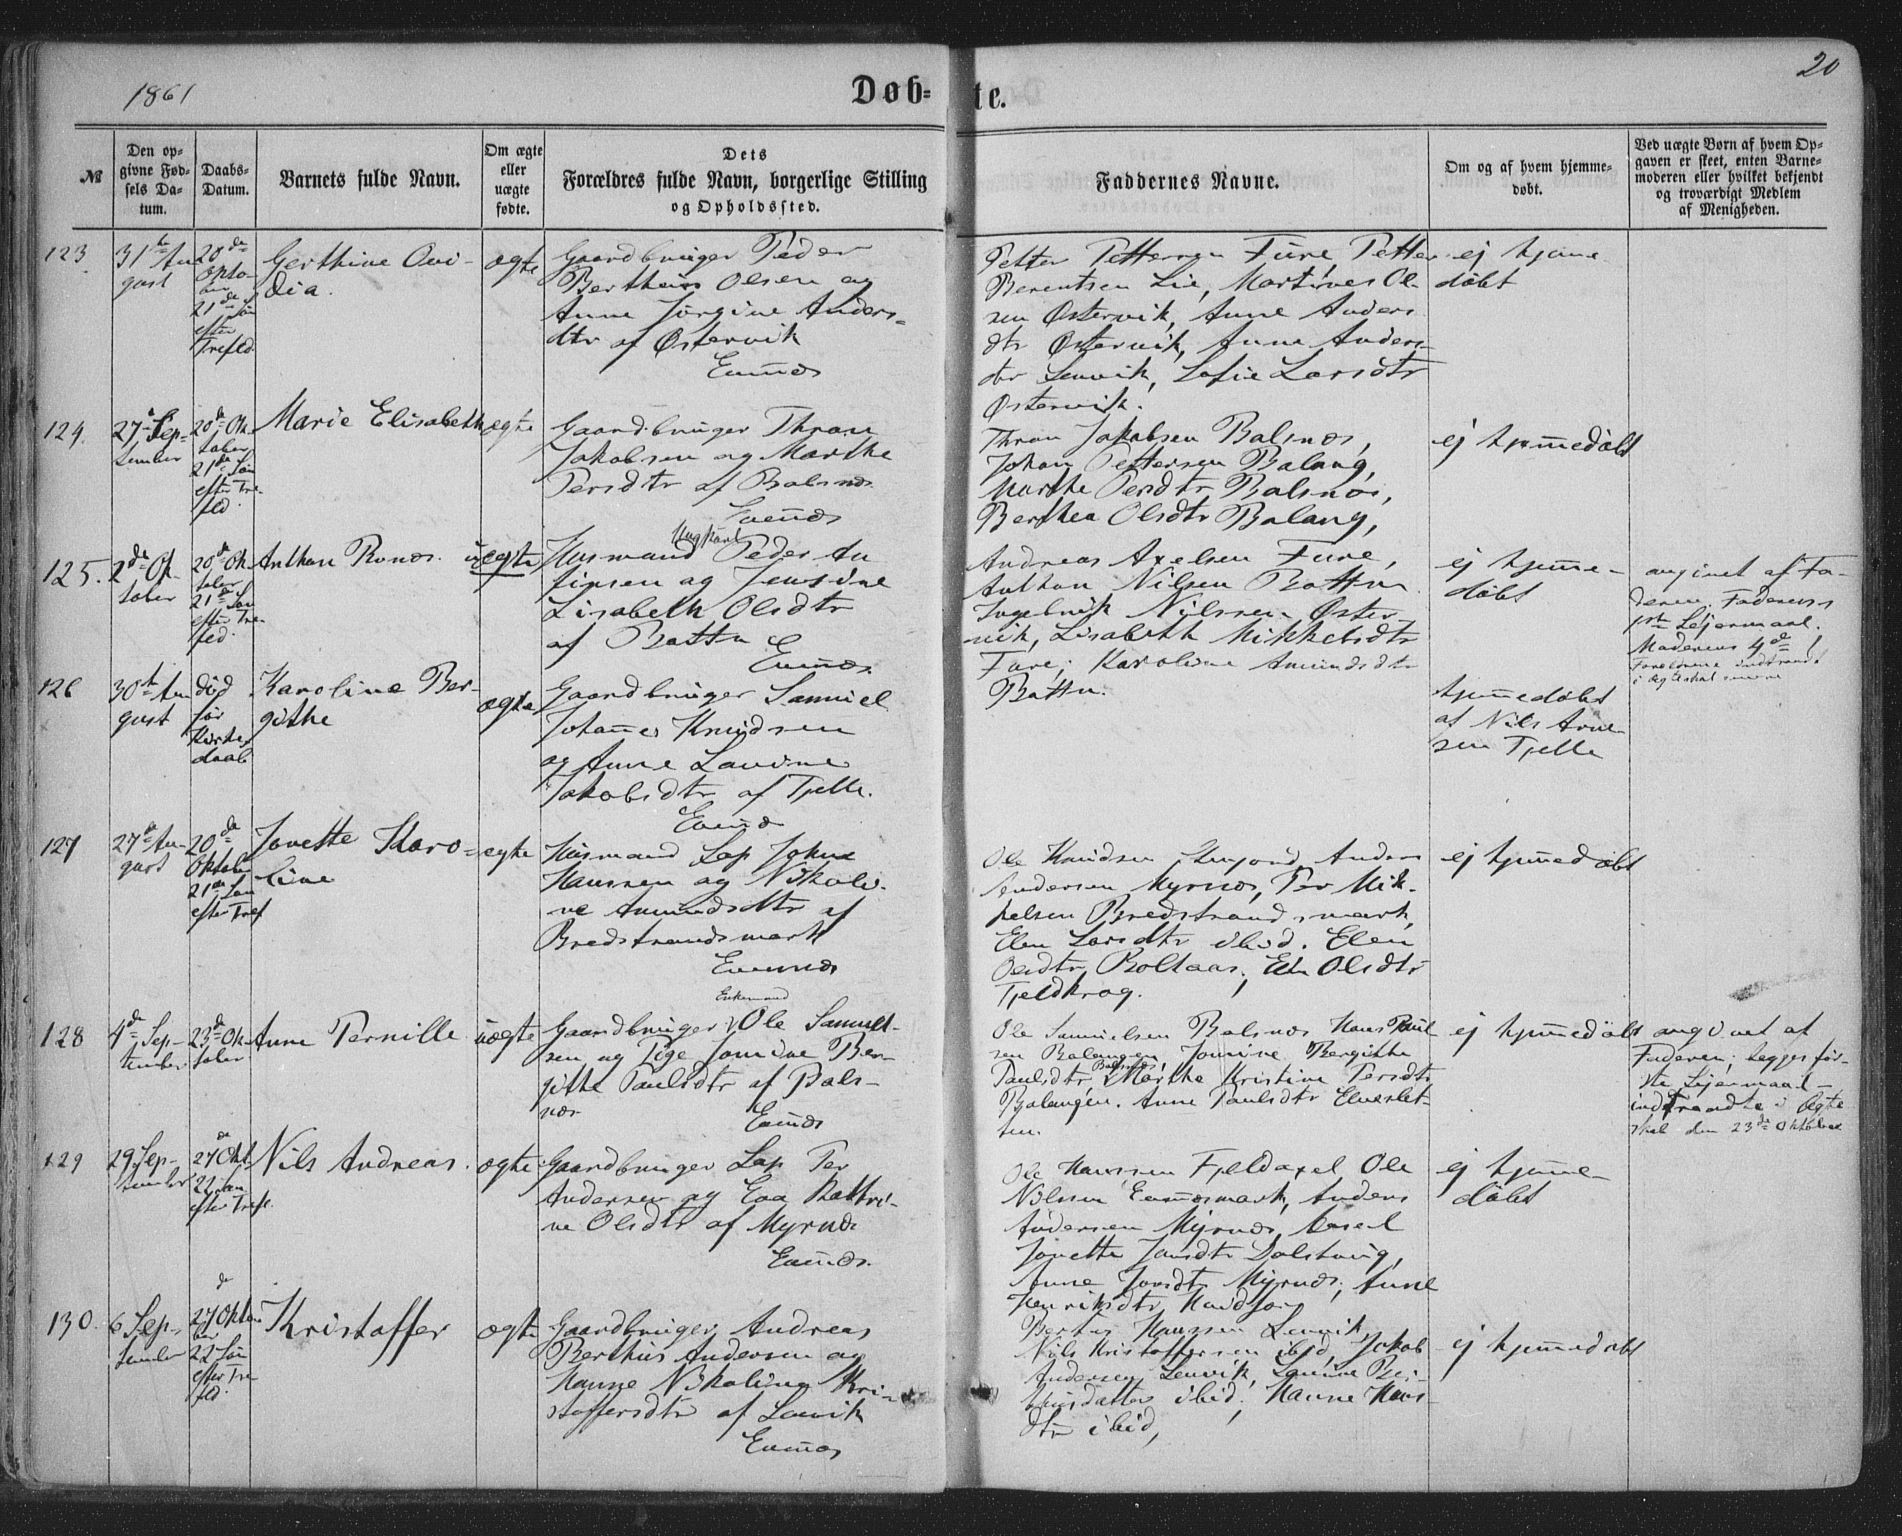 1861
Døb-
te.
20
№
Den op-
givne Fød-
sels Da-
tum.
Daabs-
Datum.
Barnets fulde Navn.
Om ægte
eller
uægte
fødte.
Dets
Forældres fulde Navn, borgerlige Stilling
og Opholdssted.
Faddernes Navne.
Om og af hvem hjemme-
døbt.
Ved uægte Børn af hvem Op-
gaven er skeet, enten Barne-
moderen eller hvilket bekjendt
og troværdigt Medlem
af Menigheden.
123
31te Au
gust
20de
Okto-
ber
21de Søn
efter
Trefld.
Gerthine Ovi-
dia.
ægte
Gaardbruger Peder
Bertheus Olsen og
Anne Jørgine Anders-
dtr af Østervik
Evenæs
Petter Pettersen Fure, Petter
Berentsen Lie, Martines Ol
sen Østervik, Anne Anders
dtr Østervik, Anne Anders-
dtr Lenvik, Sofie Larsdtr
Østervik.
ej hjemme
døbt
124.
27 Sep-
tember
20de Ok-
tober
21de Søn
efter Tre-
fld.
Marie Elisabeth
ægte
Gaardbruger Thron
Jakobsen og Marthe
Persdtr af Balsnæs
Evenæs
Thron Jakobsen Balsnæs,
Johan Pettersen Balang,
Marthe Persdtr Balsnæs,
Berthea Olsdtr Balang,
ej hjemmedøbt
125.
2de Ok-
tober
20de Ok-
tober
21de Søn
efter Tre-
fld.
Anthon Ronæs.
uægte
Ungkarl
Husmand Peder An
finsen og Jensine
Lisabeth Olsdtr
af Botten
Evenæs
Andreas Axelsen Fure,
Anthon Nilsen Botten
Ingebrik Nilssen Øster
vik, Lisabeth Mikkelsdtr
Fure, Karoline Amundsdtr
Botten.
ej hjemme-
døbt
angivet af Fa-
deren. Faderens
1ste Lejermaal.
Moderens 4de
Forældrene indtraadt
i Ægteskab senere
126
30te Au
gust
død
før
Kirke
daab
Karoline Ber-
githe
ægte
Gaardbruger Samuel
Johannes Knudsen
og Anne Lavine
Jakobsdtr af Tjelle.
Evenæs
hjemmedøbt
af Nils Arne
sen Tjelle
127
27de Au-
gust
20de
Oktober
21de Søn
efter Tref
Jonette Karo-
line
ægte
Husmand Lap Johns
Hanssen og Nikoli-
ne Amundsdtr af
Bredstrandsmark
Evenæs
Ole Knudsen Anders
Andersen Myrnæs, Per Mik-
kelsen Bredstrandsmark,
Elen Larsdtr ibid. Elen
Olsdtr Boltaas, Elen Olsdtr
Fjeldkrog.
ej hjemmedøbt
128
4de Sep-
tember
23de Ok-
tober
Anne Pernille
uægte
Enkemand
Gaardbruger Ole Samuel-
sen og Pige Jonine Ber-
gitte Paulsdtr af Bals-
næs
Evenæs
Ole Samuelsen Balsnæs, Hans Paul
sen Balangen, Jonine Bergitte
Paulsdtr Balsnæs, Marthe Kristine Persdtr
Balangen. Anne Paulsdtr Elveslet-
ten.
ej hjemmedøbt
angivet af
Faderen; begges før-
ste Lejermaal-
indtraadte i Ægte
skab den 23de Oktober
129
29 Sep-
tember
27de Okt
22 Søn
efter Tref.
Nils Andreas.
ægte
Gaardbruger Lap Per
Andersen og Eva Kathri-
ne Olsdtr af Myrnæs
Evenæs.
Ole Hanssen Fjeldaxel Ole
Nilsen Evenæsmark, Anders
Andersen Myrnæs,
Jonetta Jansdtr
Anne Jonsdtr Myrnæs, Anne
Henriksdtr
ej hjemme-
døbt
130.
6 Sep-
tember
27de Okto
ber
22 Søn
efter Tre-
fld.
Kristoffer
ægte
Gaardbruger Andreas
Berthus Andersen og
Hanne Nikoline Kri-
stoffersdtr af Lenvik
Evenæs
Hanssen Lenvik,
Nils Kristoffersen ibid, Jakob
Andersen Lenvik,
ibid, Hanne Hans-
dtr ibid,
ej hjemmedøbt